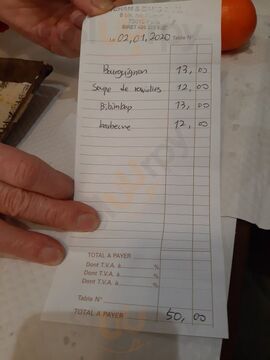 Le 02,01,2020 Table N°
Bourguignon 13,00
Soupe de raviolis 12,00
Bibimbap 13,00
barbecue 12,00
TOTAL A PAYER
Dont T.V.A. à %
Dont T.V.A. à %
Dont T.V.A. à %
Table N°
TOTAL A PAYER 50,00